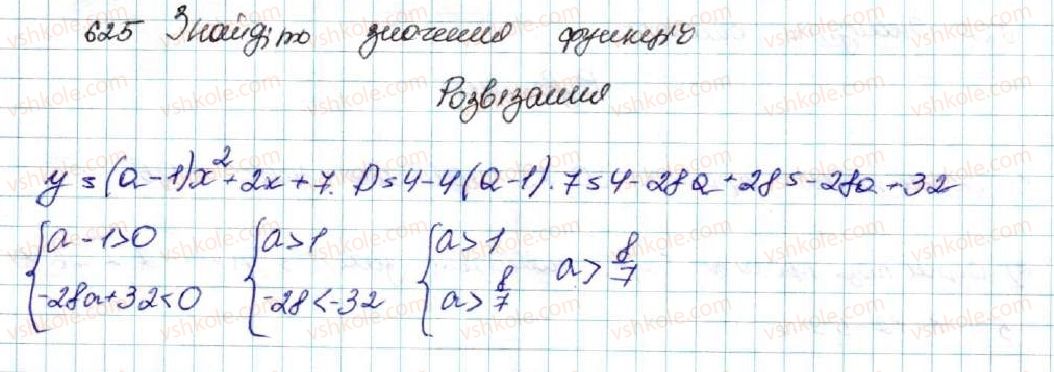 625 Знайдіть значення функції
Розв'язання
y = (a-1)x² + 2x + 7. D = 4 - 4(a-1)·7 = 4 - 28a + 28 = -28a + 32
{a - 1 > 0 {a > 1 {a > 1 a > 8/7
{-28a + 32 < 0 {-28 < -32 {a > 8/7
vshkole.com